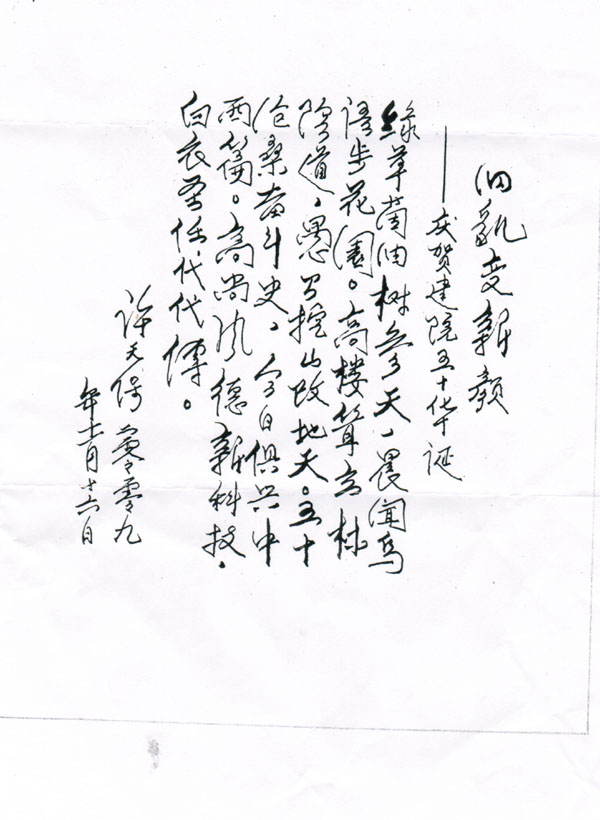 旧貌变新颜
——庆贺建院五十华诞
綠草茵油树参天，晨闻鸟
语步花園。高楼耸立林
道，愚公挖山改地天。五十
沧桑奋斗史，今日俱兴中
西篇。高尚风德新科技，
白衣圣任代代傳。
许天保 零零九
年十一月十六日